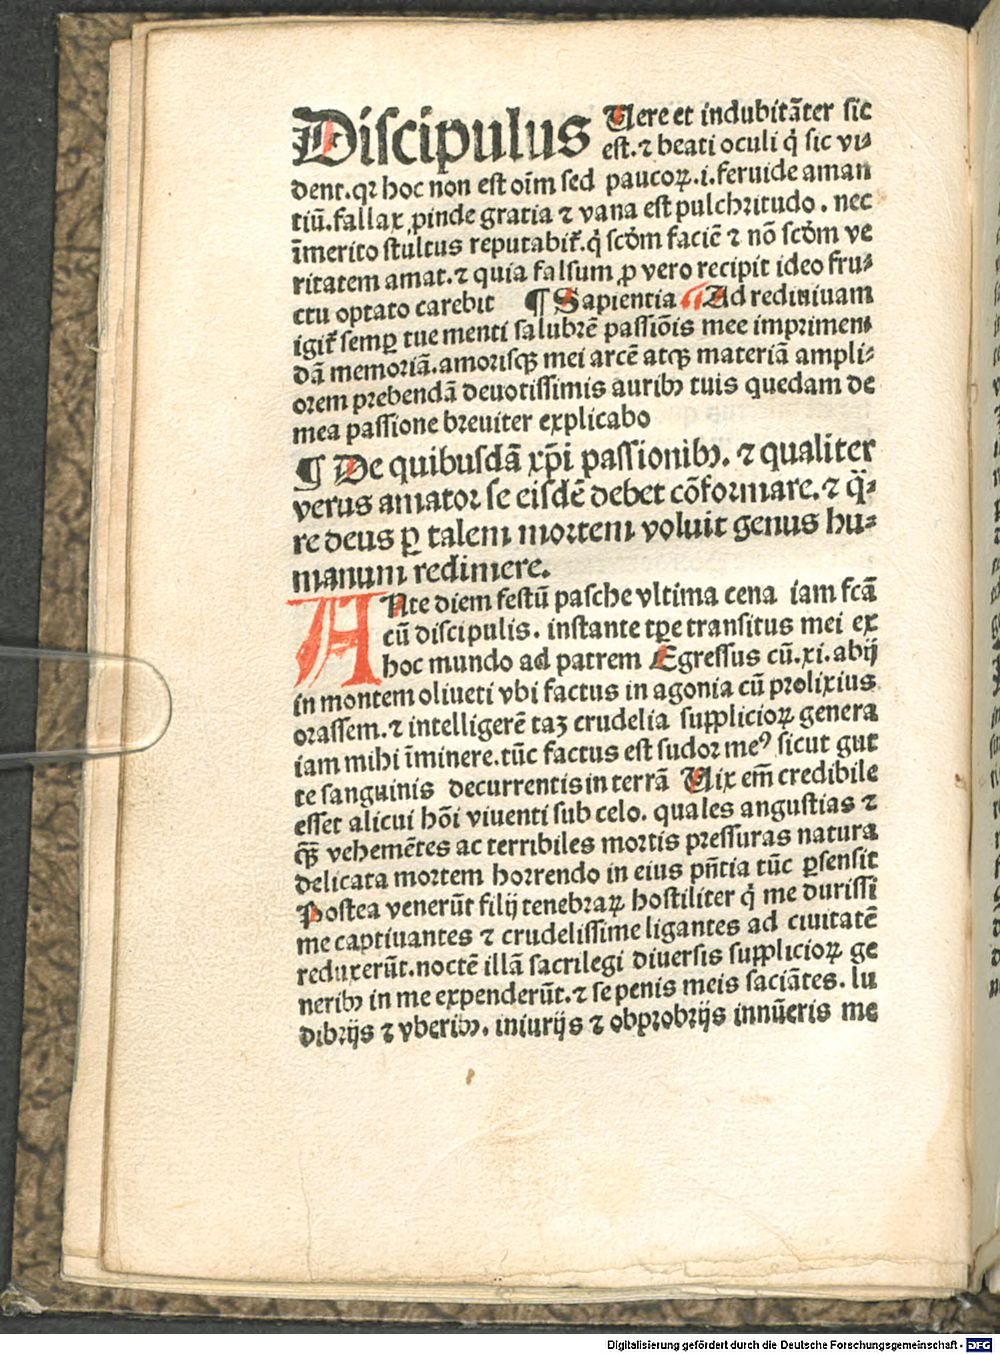 Diſcipulus Uere et indubitãter ſic
eſt. ⁊ beati oculi q̇ ſic vi⸗
dent. qꝛ hoc non eſt oĩm ſed paucoꝝ. i. feruide aman
tiũ. fallax ꝓinde gratia ⁊ vana eſt pulchritudo. nec
ĩmerito ſtultus reputabit᷑. q̇ ſcďm faciẽ ⁊ nõ ſcďm ve
ritatem amat. ⁊ quia falſum ꝓ vero recipit ideo fru⸗
ctu optato carebit ¶ Sapientia ¶ Ad rediuiuam
igit᷑ ſemꝑ tue menti ſalubrẽ paſſiõis mee imprimen
dã memoriã. amoriſqꝫ mei arcẽ atqꝫ materiã ampli⸗
orem prebendã deuotiſſimis auribꝰ tuis quedam de
mea paſſione breuiter explicabo
¶ De quibuſdã xp̃i paſſionibꝰ. ⁊ qualiter
verus amator ſe eiſdẽ debet cõformare. ⁊ q̈⸗
re deus ꝑ talem mortem voluit genus hu⸗
manum redimere.
ANte diem feſtũ paſche vltima cena iam fcã
cũ diſcipulis. inſtante tꝑe tranſitus mei ex
hoc mundo ad patrem Egreſſus cũ. xi. abij
in montem oliueti vbi factus in agonia cũ prolixius
oraſſem. ⁊ intelligerẽ taꝫ crudelia ſupplicioꝝ genera
iam mihi ĩminere. tũc factus eſt ſudor meꝰ ſicut gut
te ſanguinis decurrentis in terrã Uix em̃ credibile
eſſet alicui hõi viuenti ſub celo. quales anguſtias ⁊
qꝫ̃ vehemẽtes ac terribiles mortis preſſuras natura
delicata mortem horrendo in eius pñtia tũc ꝑſenſit
Poſtea venerũt filij tenebraꝝ hoſtiliter q̇ me duriſſi
me captiuantes ⁊ crudeliſſime ligantes ad ciuitatẽ
reduxerũt. noctẽ illã ſacrilegi diuerſis ſupplicioꝝ ge
neribꝰ in me expenderũt. ⁊ ſe penis meis ſaciãtes. lu
dibrijs ⁊ vberibꝰ. iniurijs ⁊ obprobrijs innũeris me
Digitalisierung gefördert durch die Deutsche Forschungsgemeinschaft - DFG